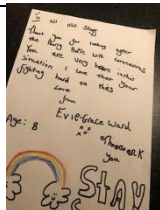 To all NHS Stags
Thank you for looking after
the Poorly People with Coronavirus
You are very brave in this
situation I love than your
fighting hard on this
Love
from
Evie-Grace Ward
xx
Age: 8
of Thank
you
STAY
S